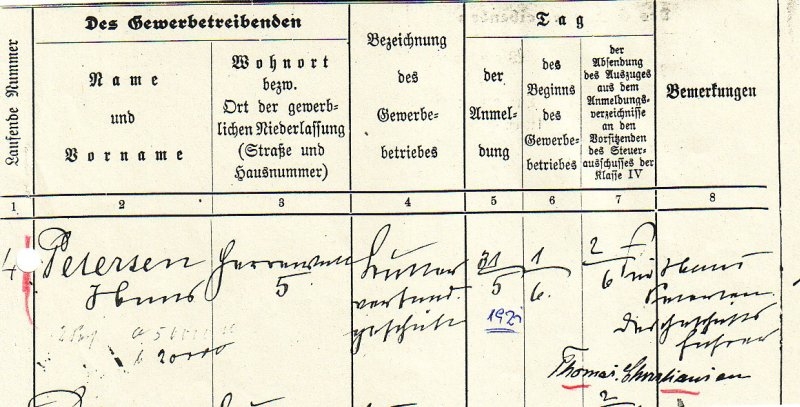 Laufende Nummer
Des Gewerbetreibenden
Name
und
Vorname
Wohnort
bezw.
Ort der gewerb-
lichen Niederlassung
(Straße und
Hausnummer)
Bezeichnung
des
Gewerbe-
betriebes
Tag
der
Anmel-
dung
des
Beginns
des
Gewerbe-
betriebes
der
Absendung
des Auszuges
aus dem
Anmeldungs-
verzeichnisse
an den
Vorsitzenden
des Steuer-
ausschusses der
Klasse IV
Bemerkungen
1 2 3 4 5 6 7 8
4
Petersen
Hans
5
31/5
192
1/6.
2/6
Für Hans
Petersen
der Geschäfts
führer
Thomas Christiansen
20000